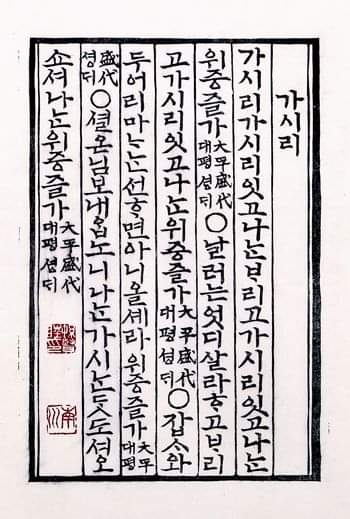 가시리
가시리가시리잇고나ᄂᆞᆫᄇᆞ리고가시리잇고나ᄂᆞᆫ
위중즐가大平盛代대평셩ᄃᆡ○날러는엇디살라ᄒᆞ고ᄇᆞ리
고가시리잇고나ᄂᆞᆫ위중즐가大平盛代대평셩ᄃᆡ○잡ᄉᆞ와
두어리마ᄂᆞᄂᆞᆫ선ᄒᆞ면아니올셰라위중즐가大平대평
盛代셩ᄃᆡ○셜온님보내ᄋᆞᆸ노니나ᄂᆞᆫ가시ᄂᆞᆫᄃᆞᆺ도셔오
쇼셔나ᄂᆞᆫ위중즐가大平盛代대평셩ᄃᆡ